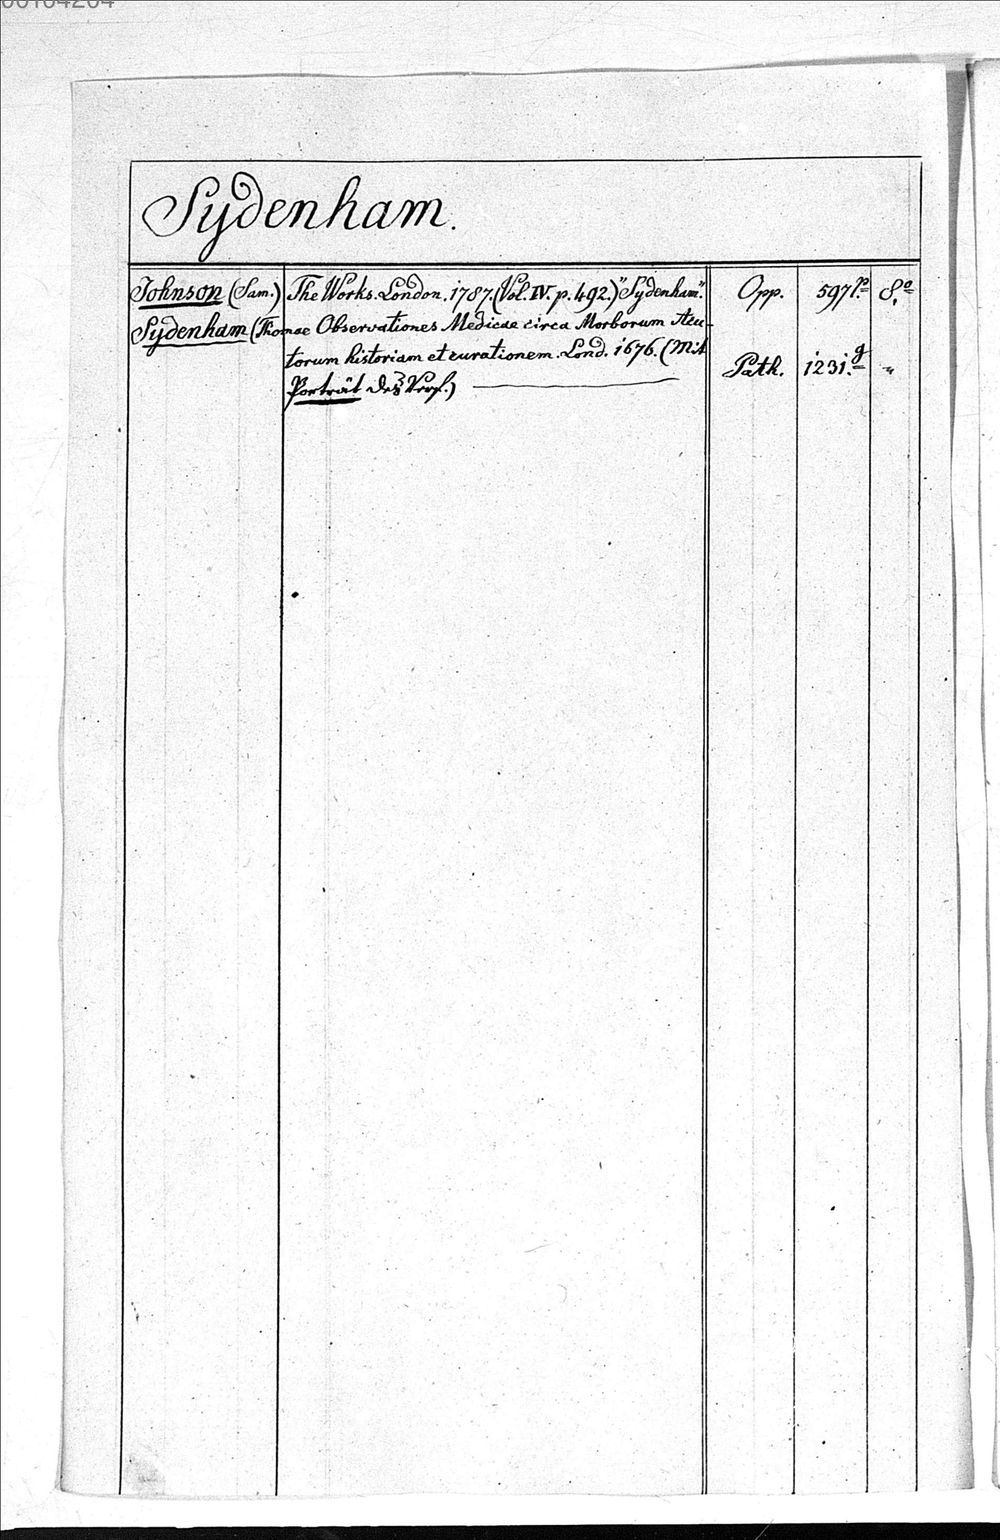 Sydenham.
Johnson (Sam.) The Works. London. 1787. (Vol. IV. p. 492.) "Sydenham". Opp. 5971.p 8.o
Sydenham (Thomae Observationes Medicae circa Morborum Acu-
torum historiam et curationem. Lond. 1676. (Mit Path. 1231.g "
Porträt des Verf.)